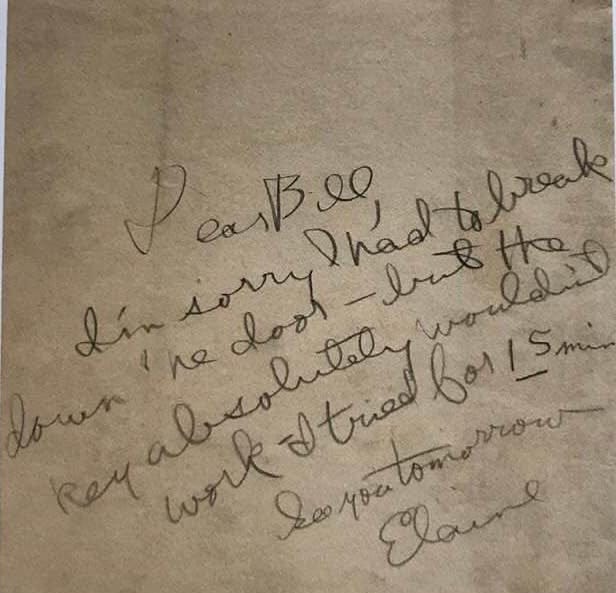 Dear Bill
I'm sorry I had to break
down the door - but the
key absolutely wouldn't
work - I tried for 15 min
See you tomorrow
Elaine